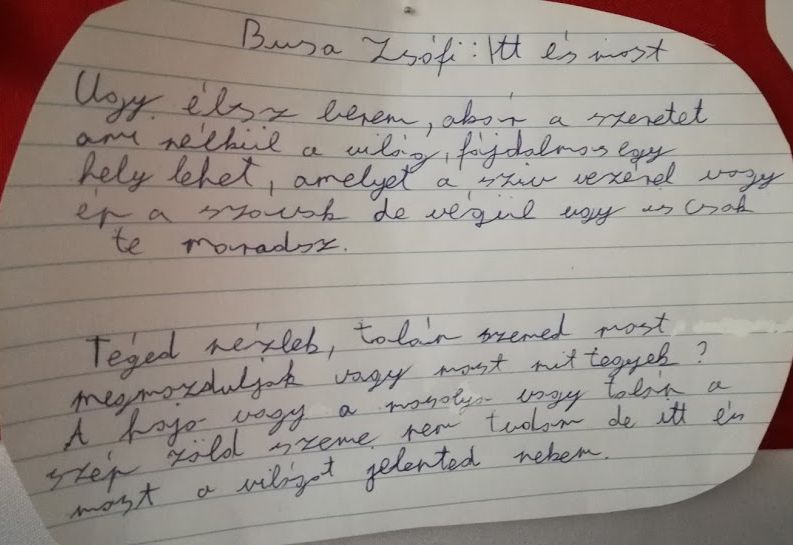 Busa Zsófi: Itt és most
Úgy élsz benem, akár a szeretet
ami nélkül a világ, fájdalmas egy
hely lehet, amelyet a sziv vezérel vagy
ép a szavak de végül ugy is csak
te maradsz.
Téged nézlek, talán szemed most
megmozduljak vagy most mit tegyek?
A haja vagy a mosolya vagy talán a
szép zöld szeme nem tudom de itt és
most a világot jelented nekem.